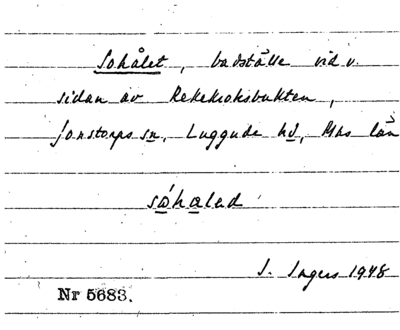 Sohålet, badställe vid v.
sidan av Rekekroksbukten,
Jonstorps sn, Luggude hd, Mas län
såhaled
I. Ingers 1948
Nr 5683.